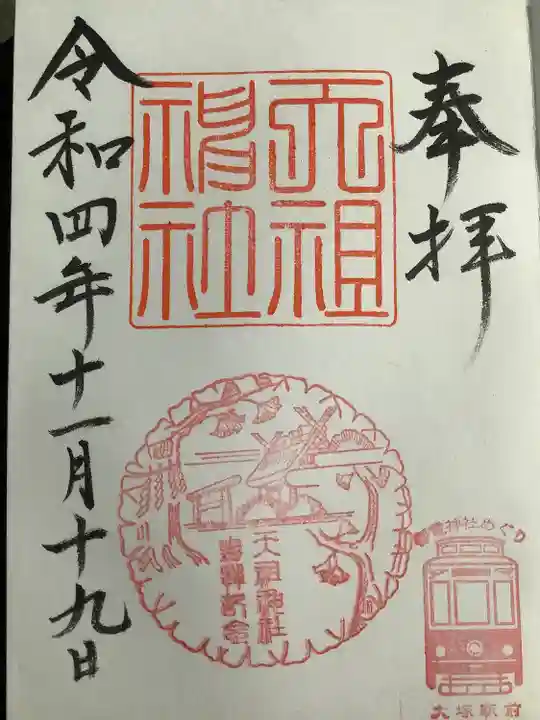 奉拝
天祖
神社
令和四年十一月十九日
天祖神社
神社めぐり
大塚駅前